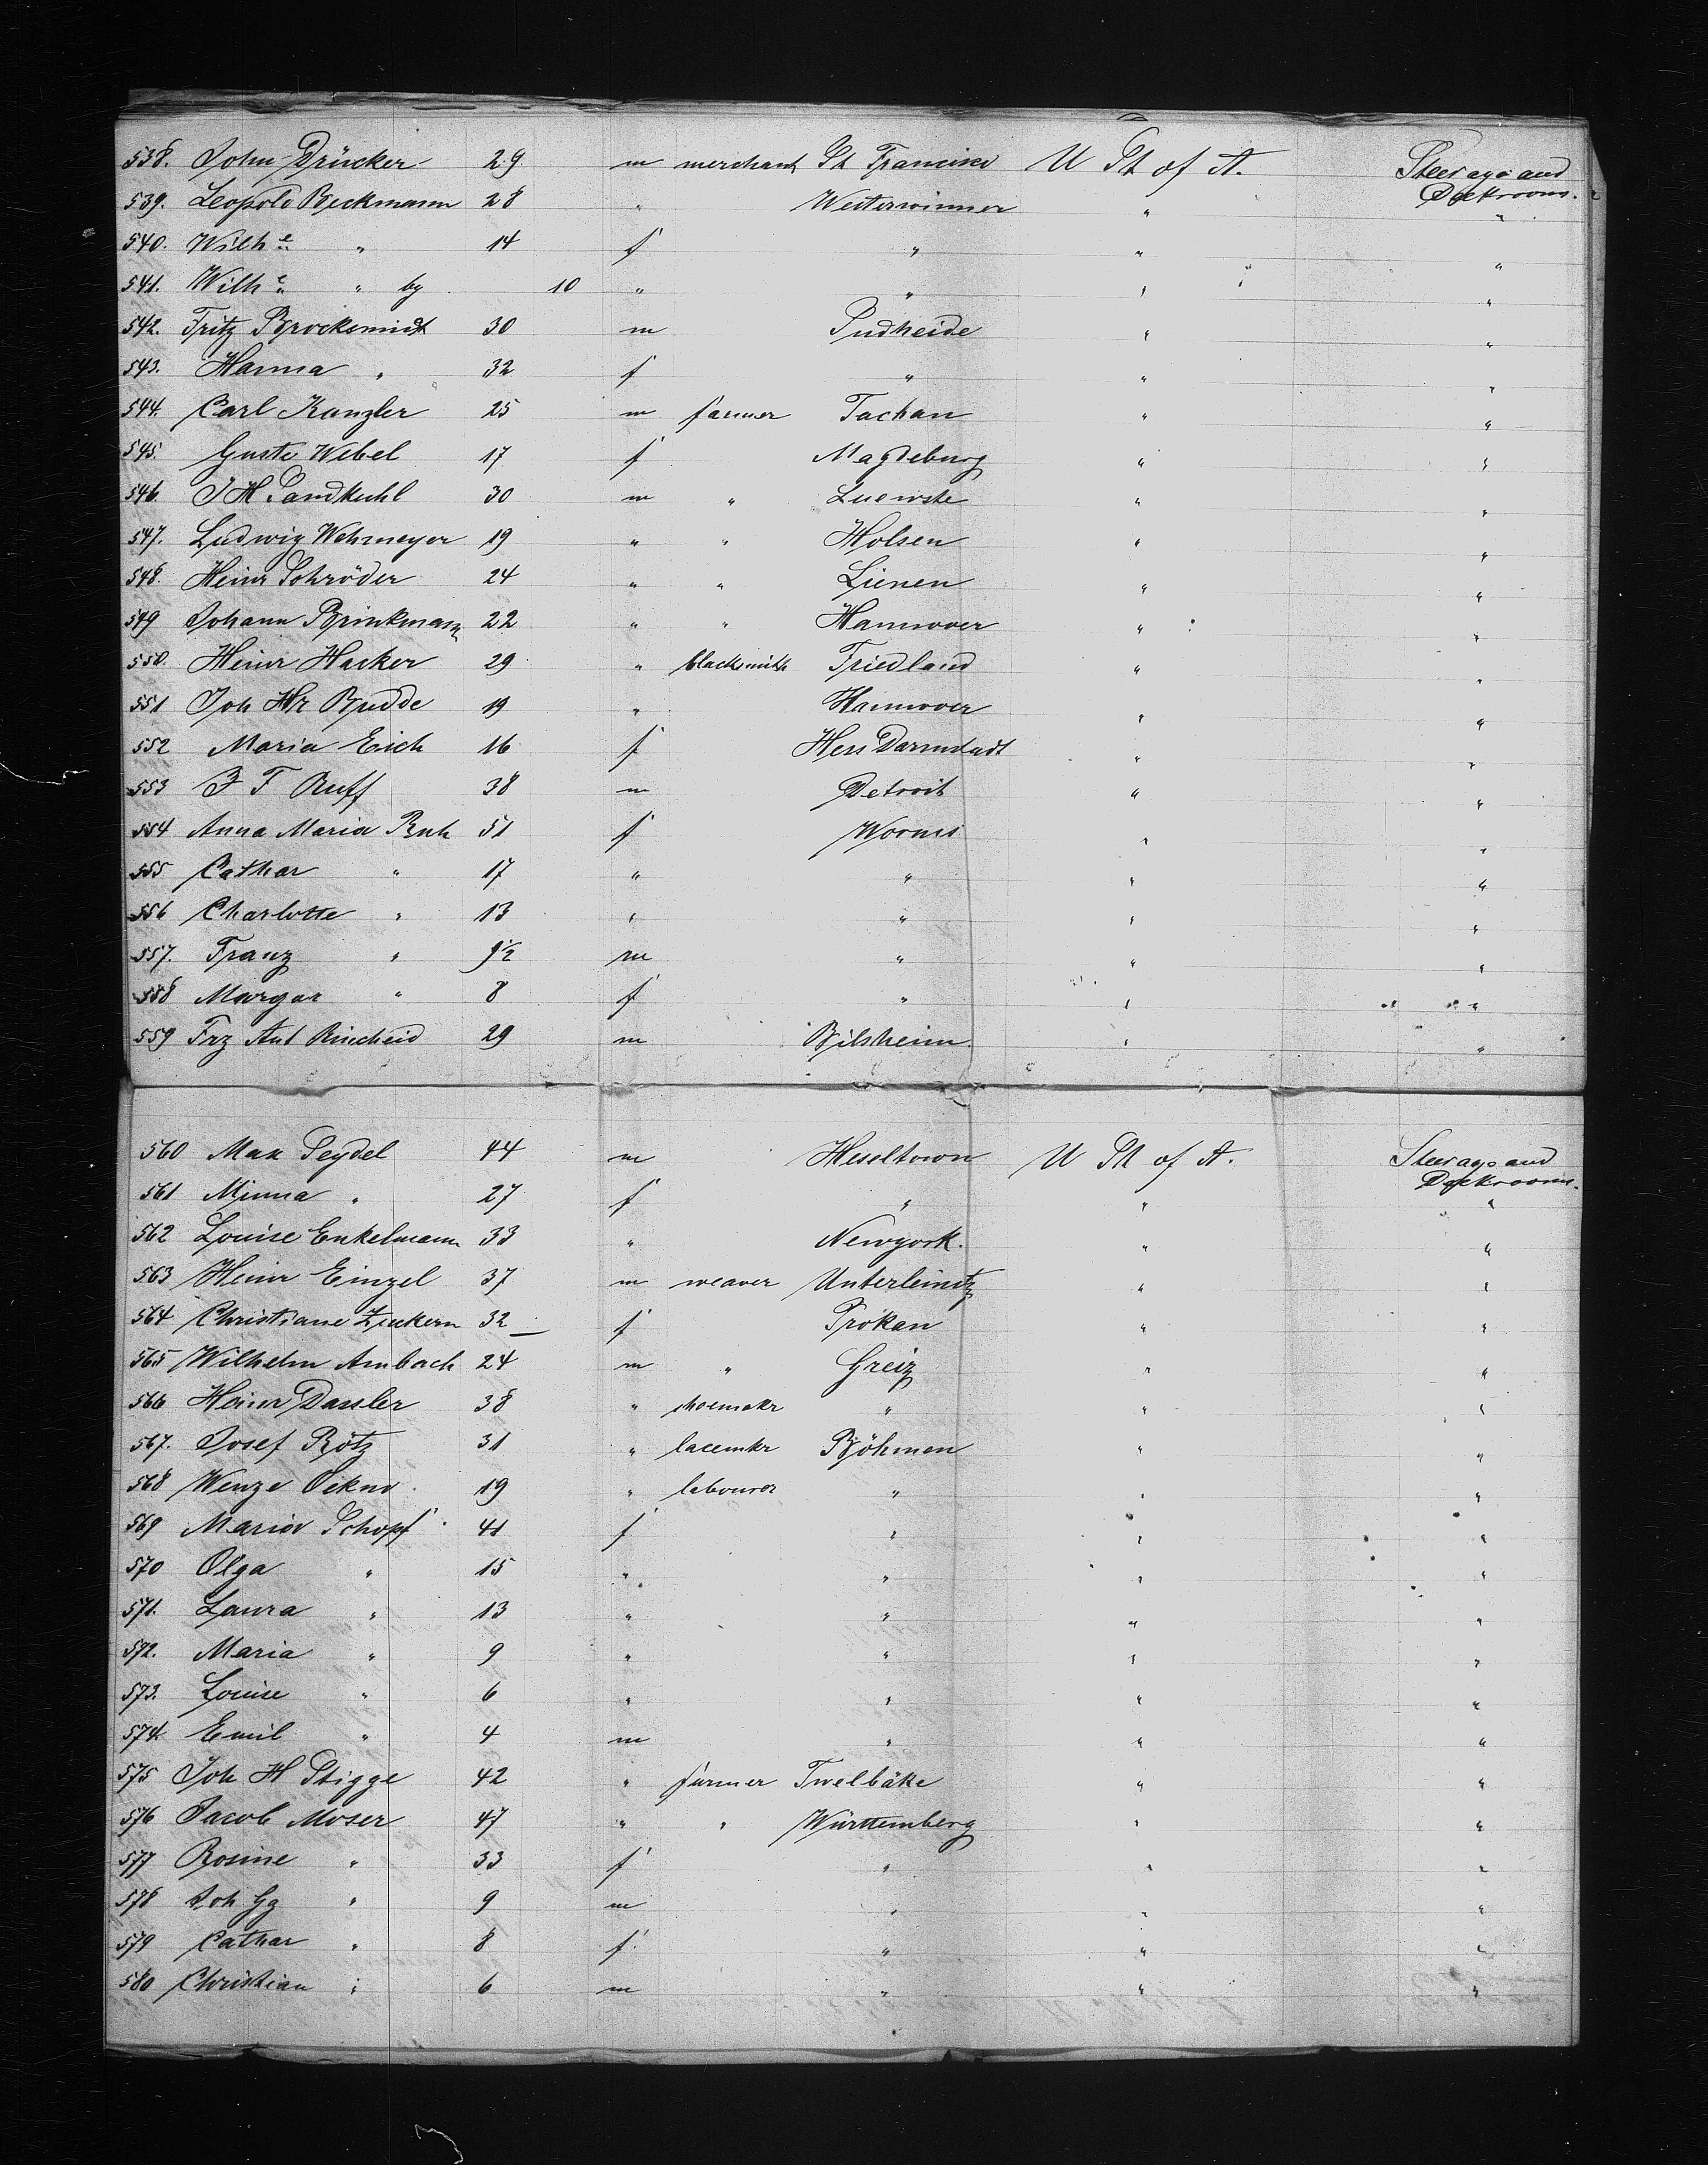 538. John Drücker 29 m merchant St Francisco U St of A. Steerage and Deckrooms.
539. Leopold Beckmann 28 " Westerwinner " "
540. Wilhe " 14 f " " "
541. Wilhe " by 10 " " " "
542. Fritz Brocksmidt 30 m Sudheide " "
543. Hanna " 32 f " " "
544. Carl Kanzler 25 m farmer Tachan " "
545. Guste Webel 17 f Magdeburg " "
546. J H Sandkuhl 30 m " " "
547. Ludwig Wehmeyer 19 " " Holsen " "
548. Heinr Schröder 24 " " Lienen " "
549 Johann Brinkmann 22 " " Hannover " "
550. Heinr Hacker 29 " blacksmith Friedland " "
551 Joh Hr Budde 19 " Hannover " "
552 Maria Erich 16 f Hess Darmstadt " "
553 F Ruff 38 m Detroit " "
554 Anna Maria Ruh 51 f Worms " "
555 Cathar " 17 " " " "
556 Charlotte " 13 " " " "
557. Franz " 9½ m " " "
558 Margar " 8 f " " "
559 Frz Ant Rincheid 29 m Bilsheim " "
560 Max Seydel 44 m Hesseltown U St of A. Steerage and Deckrooms.
561 Minna " 27 f " " "
562 Louise Enkelmann 33 " Newyork. " "
563 Heinr Einzel 37 m weaver Unterleinitz " "
564 Christiane Zenkern 32 f Prökan " "
565 Wilhelm Ambach 24 m " Greiz " "
566 Heinr Dassler 38 " shoemakr " " "
567. Josef Rötz 31 " lacemkr Böhmen " "
568 Wenze 19 " labourer " " "
569 Maria Schopf 41 f " " "
570 Olga " 15 " " " "
571. Laura " 13 " " " "
572. Maria " 9 " " " "
573. Louise " 6 " " " "
574. Emil " 4 m " " "
575 Joh H Stigge 42 " farmer Twelbäke " "
576 Jacob Moser 47 " " Württemberg " "
577 Rosine " 33 f " " "
578 Joh Gg " 9 m " " "
579 Cathar " 8 f " " "
580 Christian " 6 m " " "